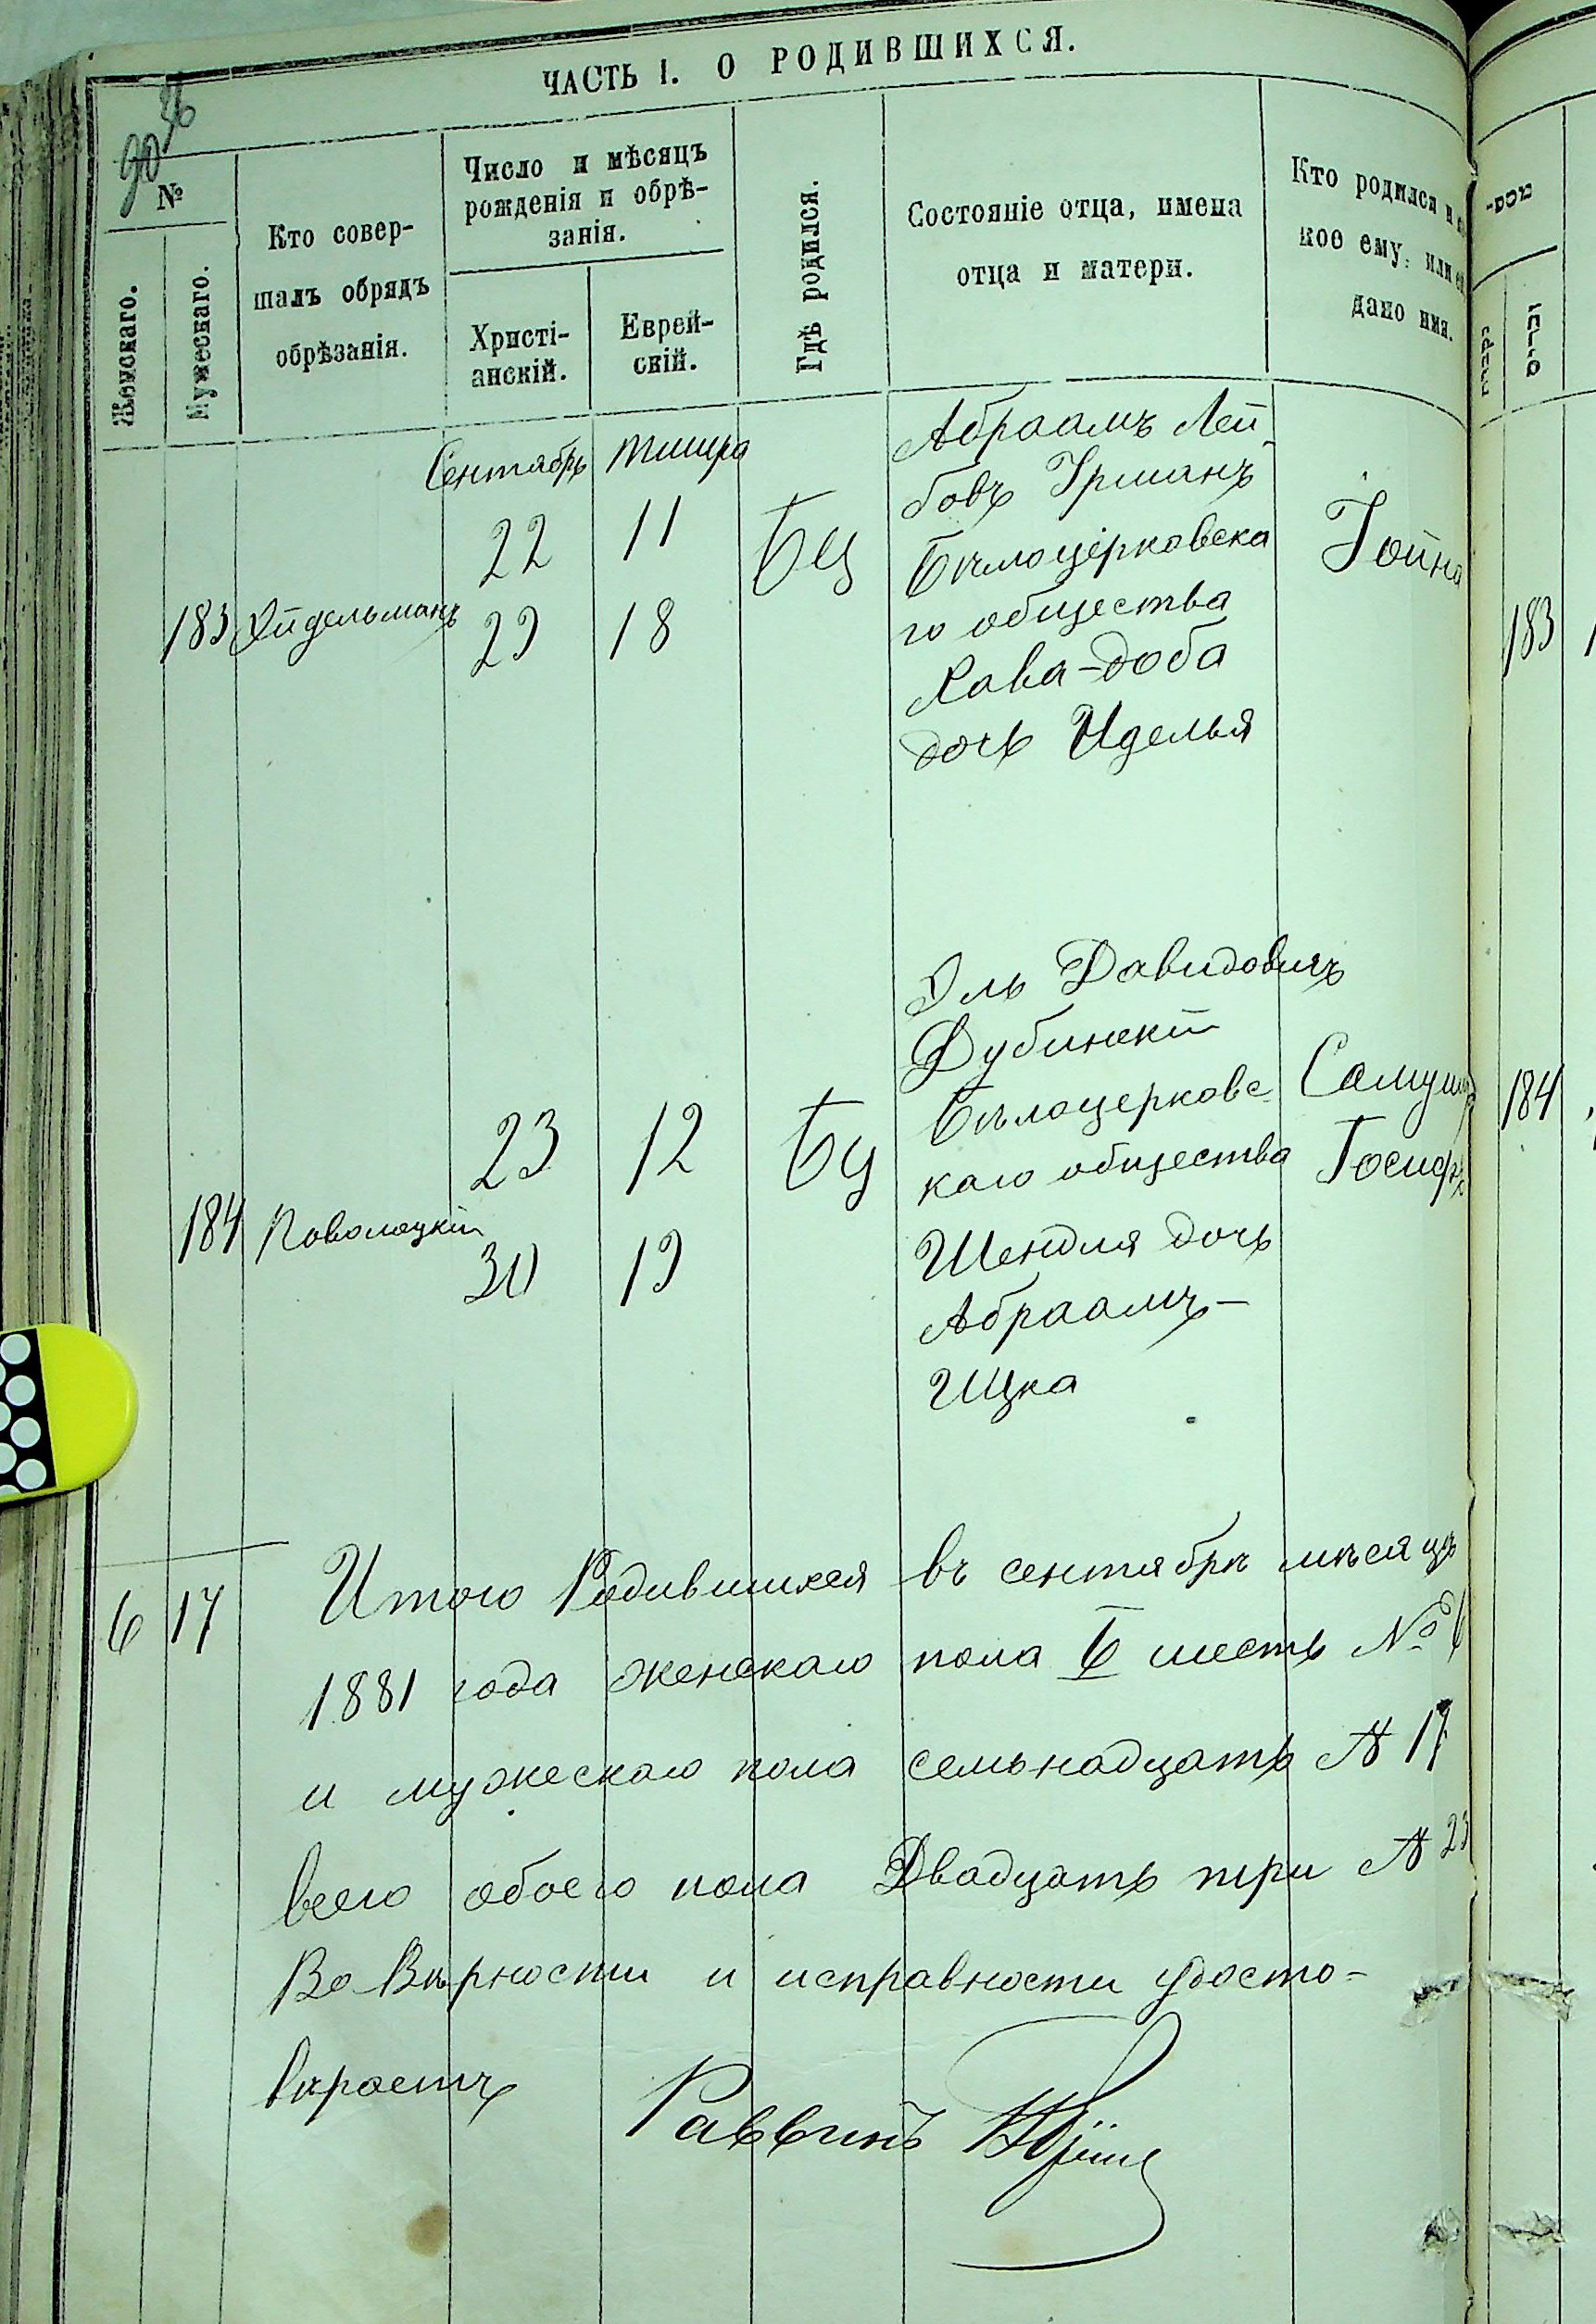 ЧАСТЬ I. О РОДИВШИХСЯ.
№
Женскаго.
Мужескаго.
Кто совер-
шалъ обрядъ
обрѣзанія.
Число и мѣсяцъ
рожденія и обрѣ-
занія.
Христі-
анскій.
Еврей-
скій.
Гдѣ родился.
Состояніе отца, имена
отца и матери.
Кто родился и
кое ему, или
дано имя.
Сентябрь Тишра
22 11 БЦ
183 Эйдельманъ 29 18
Абраамъ Лей-
бовъ Урманъ
Бѣлоцерковска
го общества
Хава-Доба
дочь Иделья
Іойна
183
23 12 БЦ
184 Поволоцкій
30 19
Эль Давидовичъ
Дубинскій
Бѣлоцерковс-
каго общества
Шендля дочь
Абраамъ-
Ицка
Іосифъ
184
6 17 Итого Родившихся въ сентябрѣ мѣсяцѣ
1881 года женскаго пола 6 шесть № 6
и мужескаго пола семьнадцать № 17
всего обоего пола Двадцать три № 23
Во Вѣрности и исправности удосто-
вѣряетъ
Раввинъ